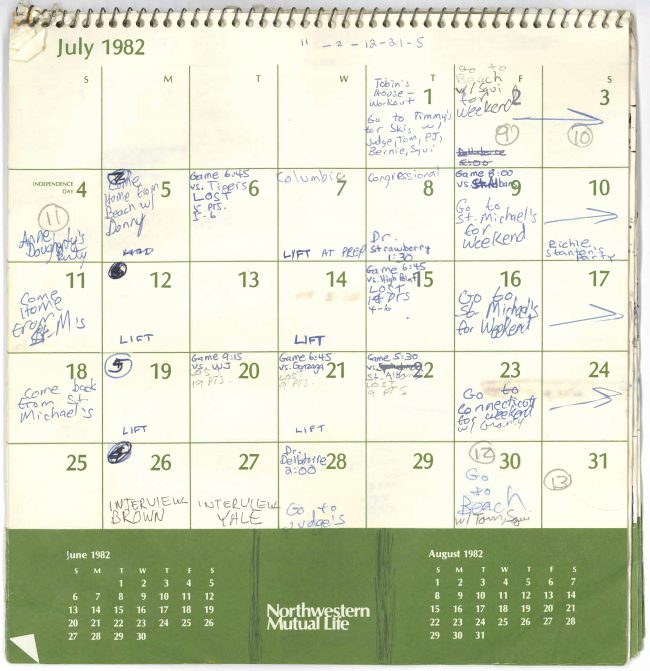 July 1982
11 - 2 - 12-21-5
S M T W T F S
Tobin's
House -
Workout
1
Go to Timmy's
for Skis w/
Judge, Tom, PJ,
Bernie, Squi
Go to
Beach
w/ Squi
for
Weekend
2
9
3
10
INDEPENDENCE
DAY 4
11
Anne
Dougherty's
Party
5
Come
Home from
Beach w/
Danny
Game 6:45
vs. Tigers
LOST
5-6
6
Columbia
7
LIFT AT PREP
Congressional
8
Dr.
Strawberry
1:30
Game 8:00
vs
9
Go to
St. Michael's
for
Weekend
10
Richie
Stanton's
Party
11
Come
Home
from
St. M's
12
LIFT
13
14
LIFT
Game 6:45
vs. High Point
LOST
14 PTS
4-6
15
16
Go to
St. Michael's
for Weekend
17
18
Come back
from St.
Michael's
19
LIFT
Game 9:15
vs. WJ
LOST
19 PTS.
20
Game 6:45
vs. Gonzaga
LOST
9 PTS.
21
LIFT
Game 5:30
vs.
St. Albans
LOST
9 PTS.
22
23
Go to
Connecticut
for weekend
w/ Granny
24
25
26
INTERVIEW
BROWN
27
INTERVIEW
YALE
Dr.
2:00
28
Go to
Judge's
29
12
30
Go
to
Beach
w/ Tom, Squi
31
13
June 1982
S M T W T F S
1 2 3 4 5
6 7 8 9 10 11 12
13 14 15 16 17 18 19
20 21 22 23 24 25 26
27 28 29 30
Northwestern
Mutual Life
August 1982
S M T W T F S
1 2 3 4 5 6 7
8 9 10 11 12 13 14
15 16 17 18 19 20 21
22 23 24 25 26 27 28
29 30 31